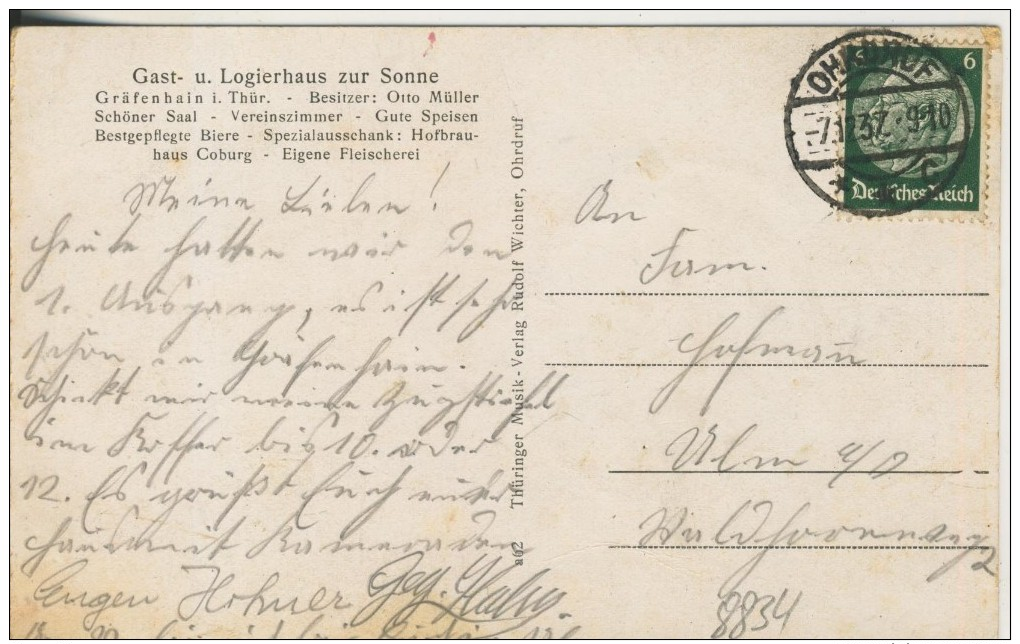 Gast- u. Logierhaus zur Sonne
Gräfenhain i. Thür. - Besitzer: Otto Müller
Schöner Saal - Vereinszimmer - Gute Speisen
Bestgepflegte Biere - Spezialausschank: Hofbrau-
haus Coburg - Eigene Fleischerei
Meine Lieben!
heute hatten wir den
1. Ausgang, es ist sehr
schön in Gräfenhain.
Schickt mir meine
im Koffer bis 10. oder
12. Es grüßt Euch
mit Kameraden
Eugen
862 Thüringer Musik-Verlag Rudolf Wichter, Ohrdruf
OHRDRUF
6
Deutsches Reich
An
Fam.
Hofmann
Ulm a/D
8834